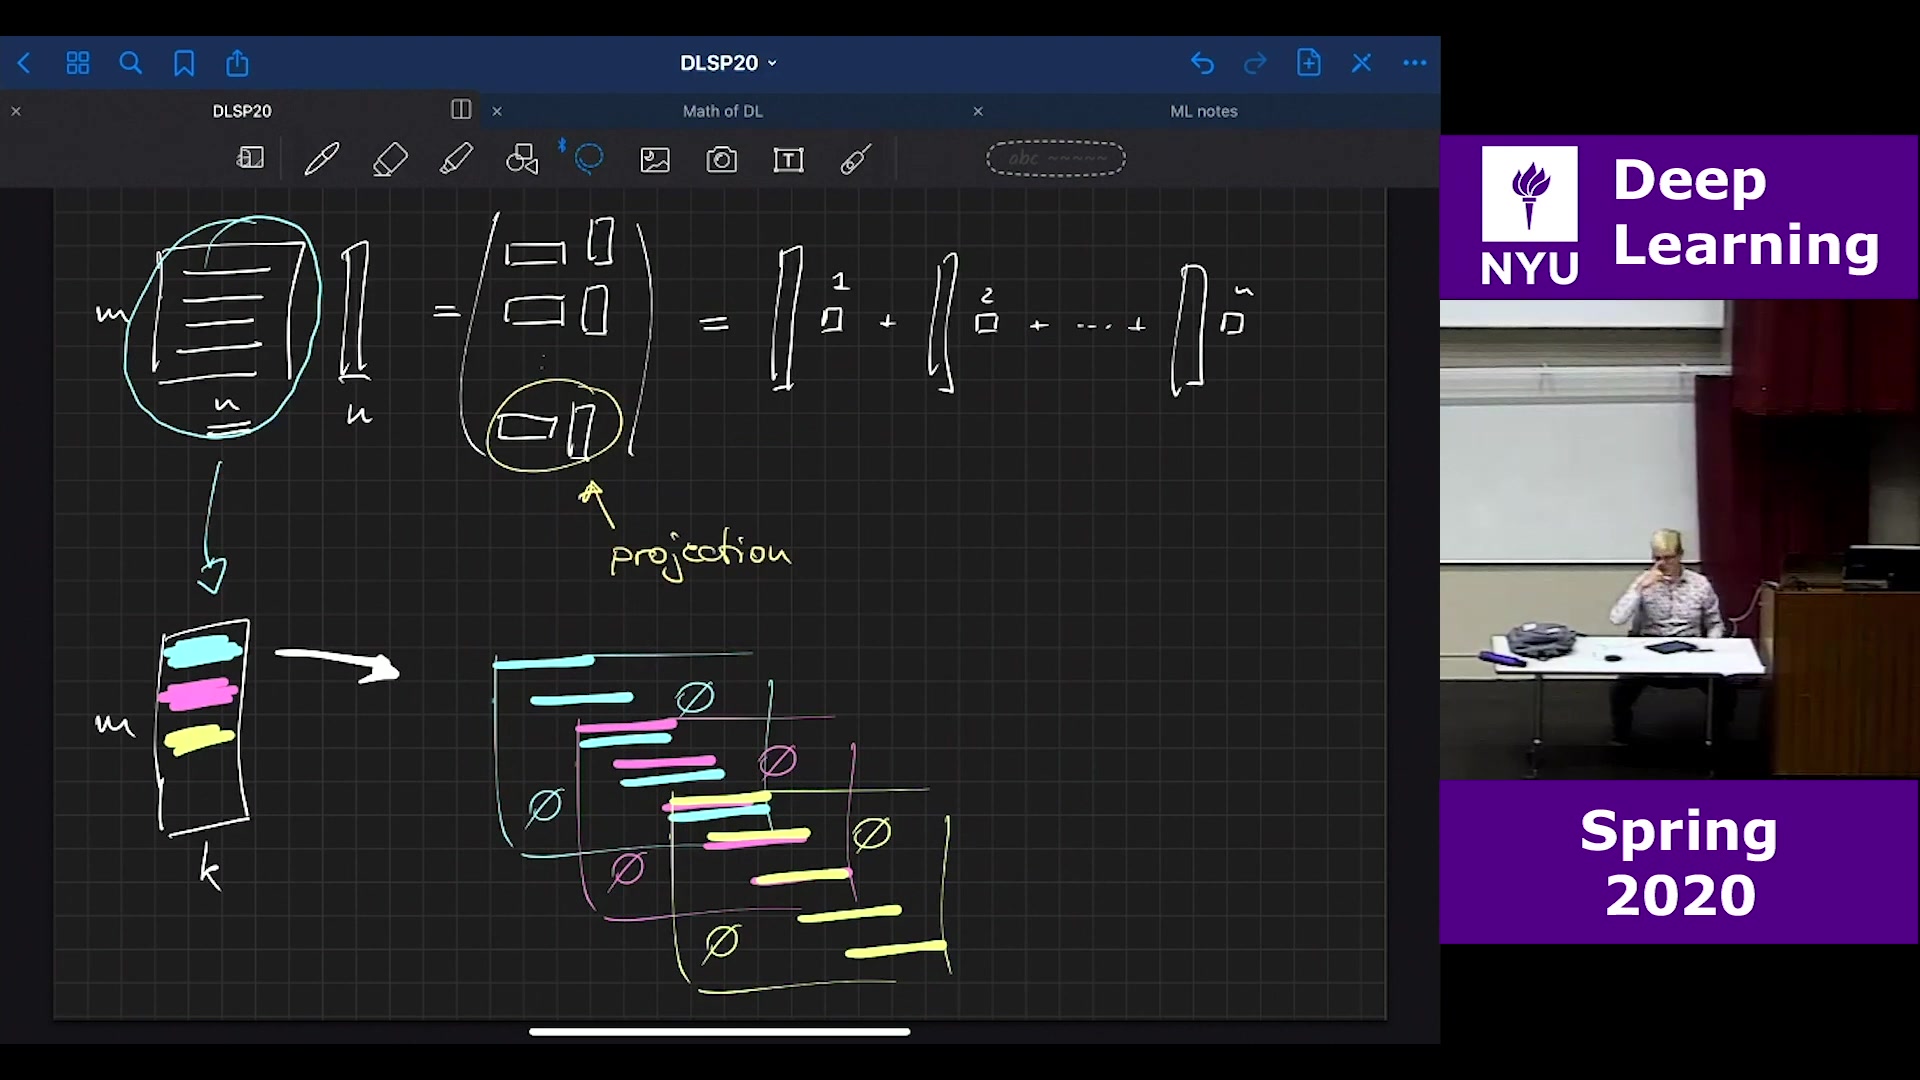 DLSP20
DLSP20
Math of DL
ML notes
T
abc ~~~~~
m
n
n
=
=
1
+
2
+ ... +
n
projection
m
k
∅
∅
∅
∅
∅
∅
NYU
Deep
Learning
Spring
2020